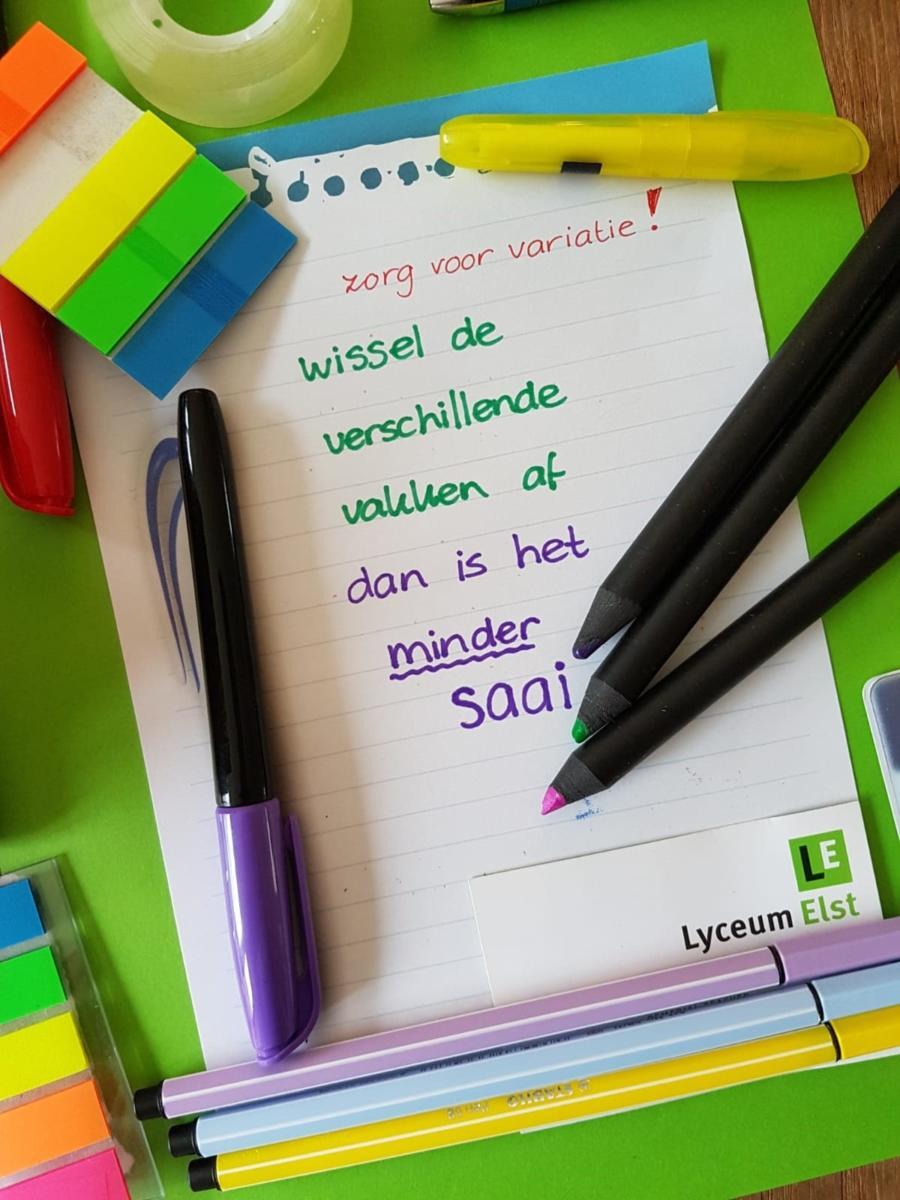 zorg voor variatie!
wissel de
verschillende
vakken af
dan is het
minder
saai
LE
Lyceum Elst
STABILO